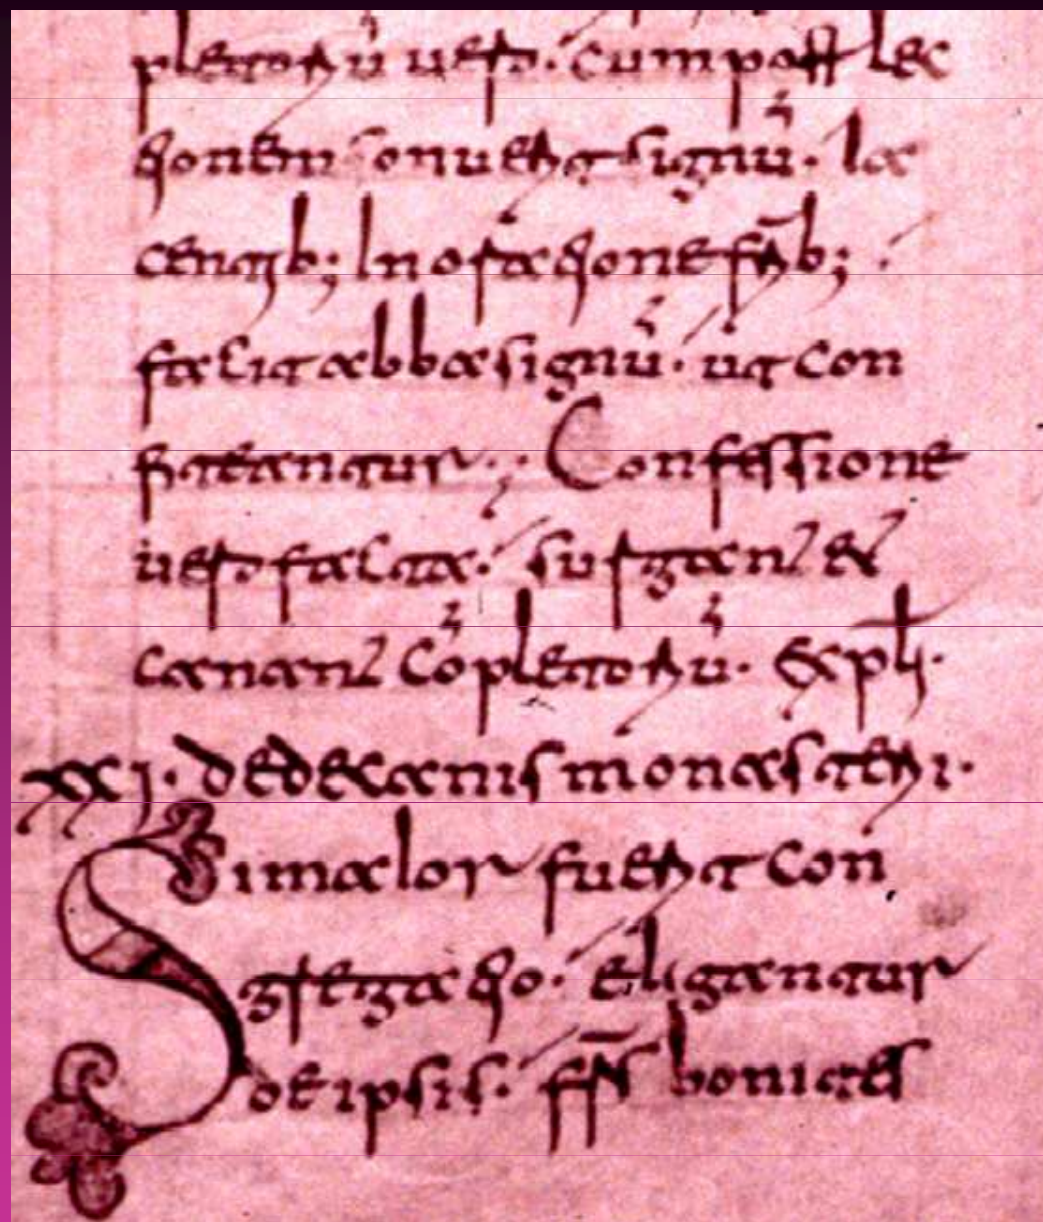 pletoriū uero. cum post lec
tionem sonuerit signū. Ia
centib; In oratione frīb;
faciat abba signū. ut con
fiteantur. Confessione
uero facta. surgant et
canant cōpletoriū. Expli.
xxi. de decanis monasteri.
Si maior fuerit con
gregatio. eligantur
de ipsis. frs̄ boni tes